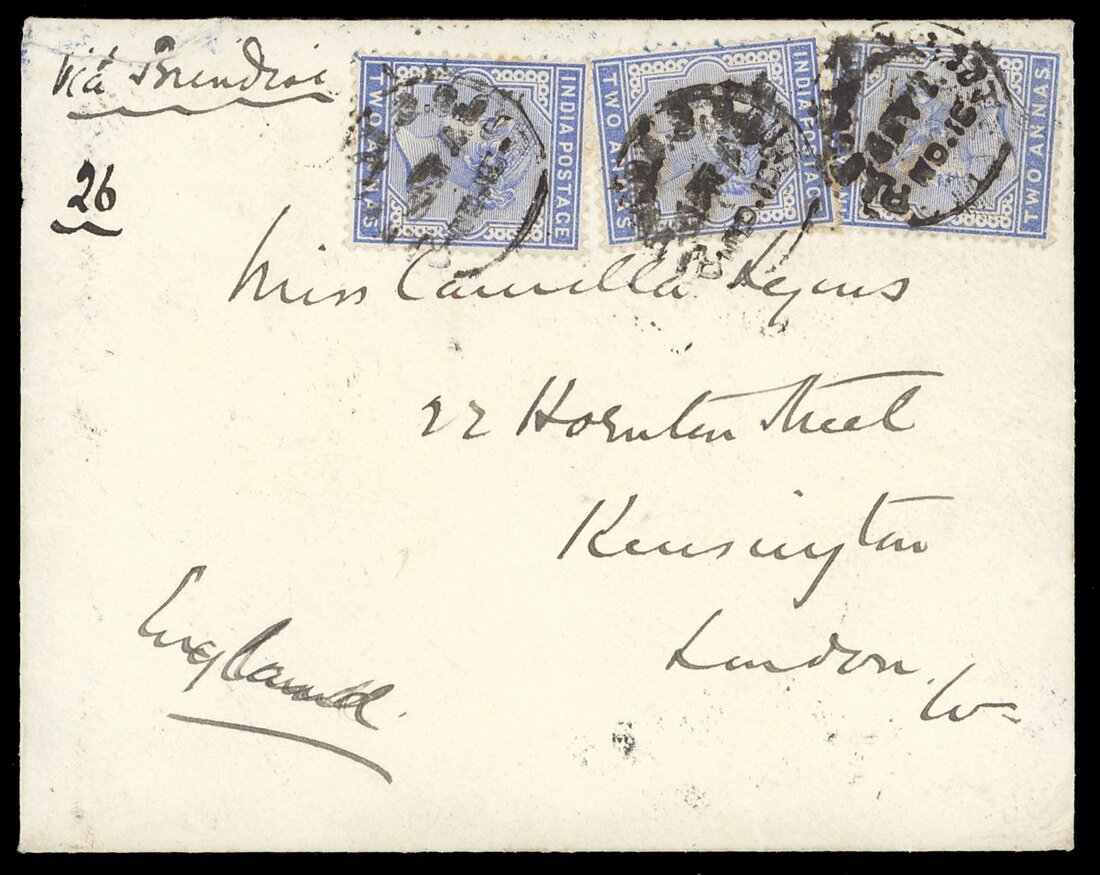 Via Brindisi
26
TWO ANNAS INDIA POSTAGE
TWO ANNAS INDIA POSTAGE
TWO ANNAS
Miss Camilla
22 Hornton Street
Kensington
London. W-
England.